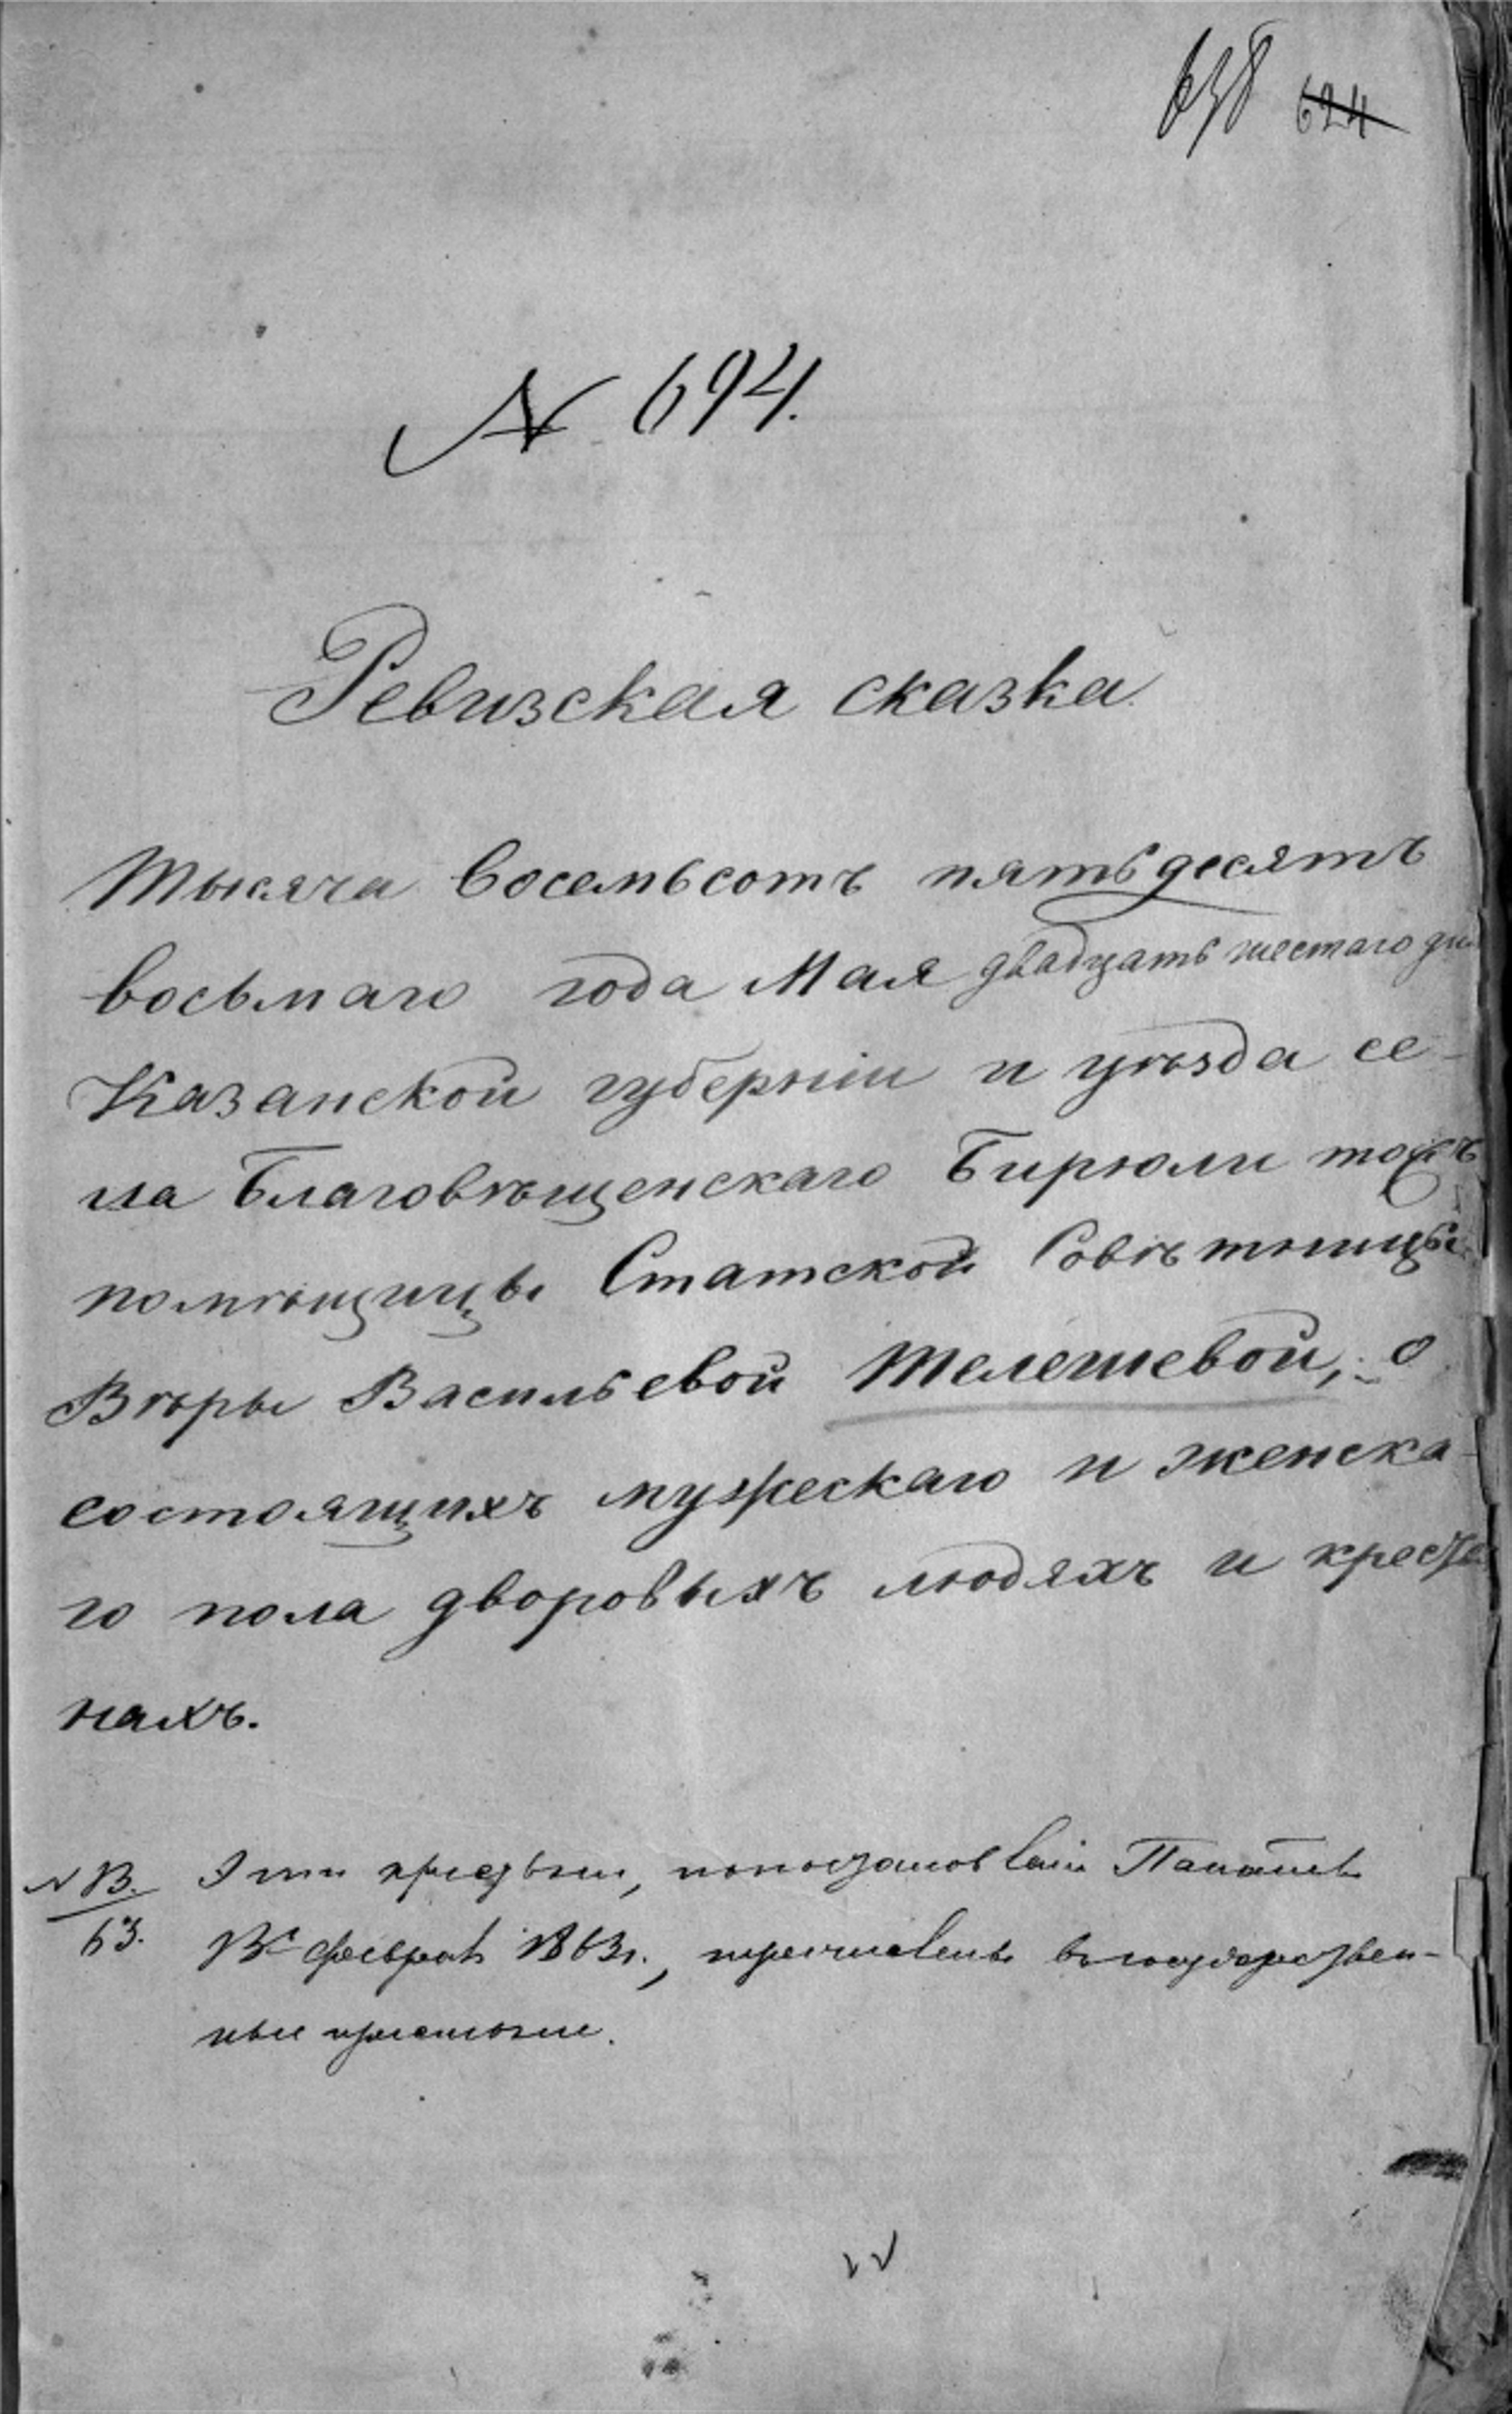 638 624
№ 694.
Ревизская сказка
Тысяча восемьсотъ пятьдесятъ
восьмаго года Мая двадцать шестаго дня
Казанской губерніи и уѣзда се-
ла Благовѣщенскаго Бирюли тожъ
помѣщицы Статской Совѣтницы
Вѣры Васильевой Телешевой, о
состоящихъ мужескаго и женска-
го пола дворовыхъ людяхъ и крестья
нахъ.
NB. Эти крестьяне, по постановленію Палаты
63. февраля 1863 г., перечислены въ государствен-
ные крестьяне.